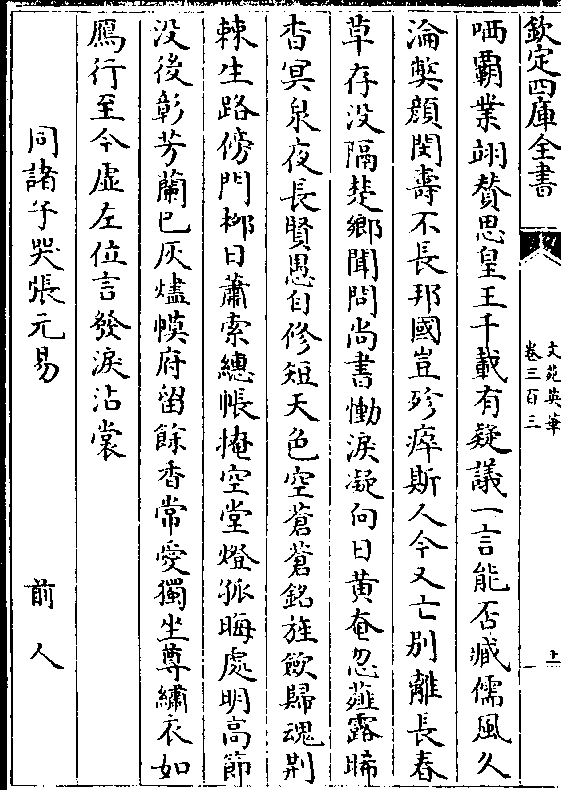 欽定四庫全書
文苑英華
卷三百三
上
哂覇業翊賛思皇王千載有疑議一言能否臧儒風久
淪弊顔閔壽不長邦國豈殄瘁斯人今又亡别離長春
草存没隔楚鄉聞問尚書慟淚凝向日黄奄忽薤露晞
杳冥泉夜長賢愚自修短天色空蒼蒼銘旌斂歸魂荆
棘生路傍門柳日蕭索繐帳掩空堂燈孤晦處明高節
没後彰芳蘭已灰燼幙府留餘香常愛獨坐尊繡衣如
鴈行至今虚左位言發淚沾裳
同諸子哭張元易
前人